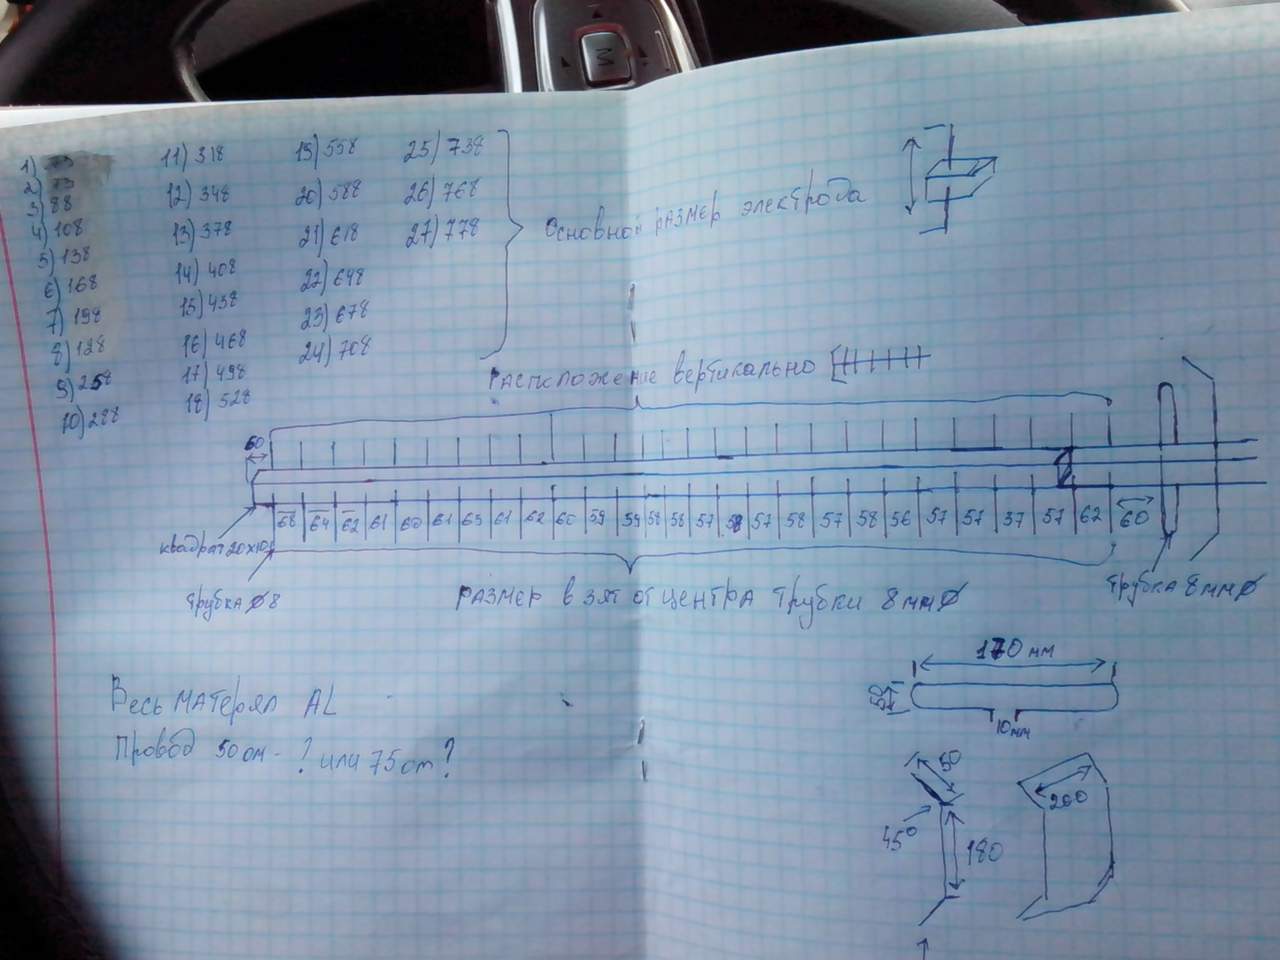 1) 73
2) 73
3) 88
4) 108
5) 138
6) 168
7) 198
8) 128
9) 258
10) 288
11) 318
12) 348
13) 378
14) 408
15) 438
16) 468
17) 498
18) 528
19) 558
20) 588
21) 618
22) 648
23) 678
24) 708
25) 738
26) 768
27) 778
Основной размер электрода
Расположение вертикально
60
68 64 62 61 60 61 63 61 62 60 59 59 58 58 57 58 57 58 57 58 56 57 57 37 57 62 60
квадрат 20х10
Трубка ⌀ 8
Размер взят от центра трубки 8мм⌀
Трубка 8мм⌀
170 мм
10мм
Весь матерял AL
Провод 50 ом - ? или 75 ом?
50
45°
180
200
M